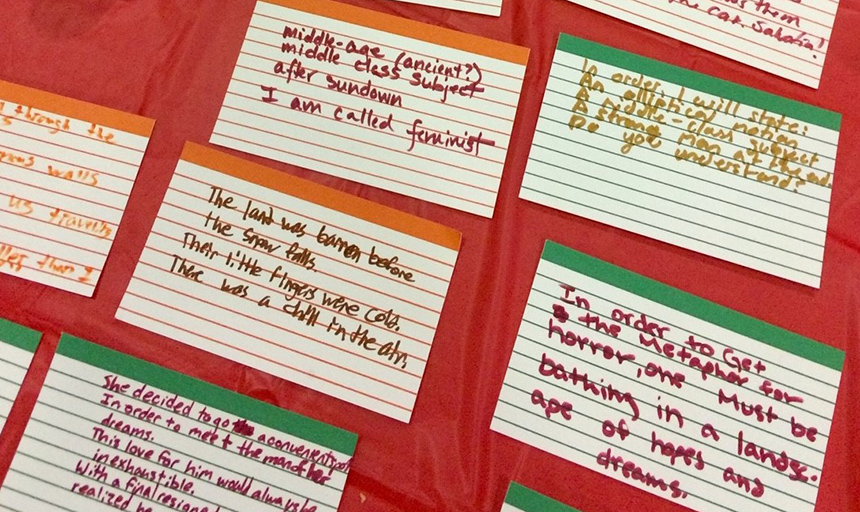 s them
the cat. Sabatia!
middle-age (ancient?)
middle class subject
after sundown
I am called feminist
In order, I will state:
An elliptical nation
A middle-class subject
A strange man at the end.
Do you understand?
through the
walls
us travels
than I
The land was barren before
the snow falls.
Their little fingers were cold.
There was a chill in the air.
In order to Get
the Metaphor for
horror, one Must be
bathing in a landsc-
ape of hopes and
dreams.
She decided to go to a convenient
In order to meet the man of her
dreams.
This love for him would always be
inexhaustible.
With a final resigned
realized he